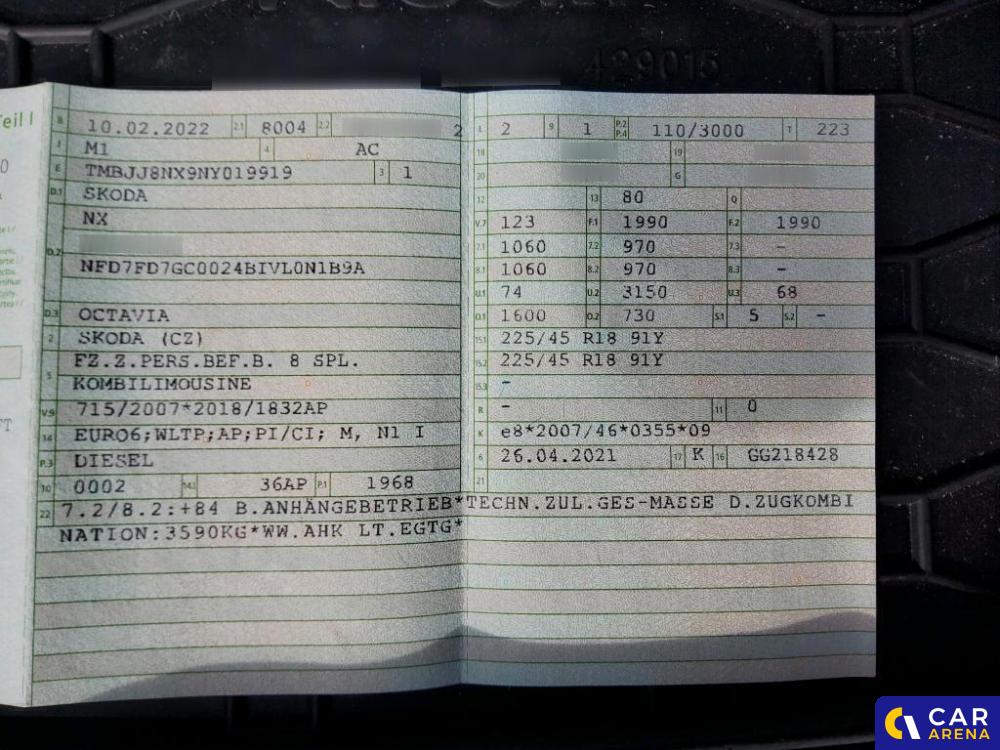 429015
Teil I
B 10.02.2022 2.1 8004 2.2 2
J M1 4 AC
E TMBJJ8NX9NY019919 3 1
D.1 SKODA
NX
D.2
NFD7FD7GC0024BIVL0N1B9A
D.3 OCTAVIA
2 SKODA (CZ)
FZ.Z.PERS.BEF.B. 8 SPL.
5 KOMBILIMOUSINE
V.9 715/2007*2018/1832AP
14 EURO6;WLTP;AP;PI/CI; M, N1 I
P.3 DIESEL
10 0002 14.1 36AP P.1 1968
L 2 9 1 P.2 P.4 110/3000 T 223
18 19
20 G
12 13 80 Q
V.7 123 F.1 1990 F.2 1990
7.1 1060 7.2 970 7.3 -
8.1 1060 8.2 970 8.3 -
U.1 74 U.2 3150 U.3 68
O.1 1600 O.2 730 S.1 5 S.2 -
15.1 225/45 R18 91Y
15.2 225/45 R18 91Y
15.3 -
R - 11 0
K e8*2007/46*0355*09
6 26.04.2021 17 K 16 GG218428
21
22 7.2/8.2:+84 B.ANHÄNGEBETRIEB*TECHN.ZUL.GES-MASSE D.ZUGKOMBI
NATION:3590KG*WW.AHK LT.EGTG*
CAR
ARENA